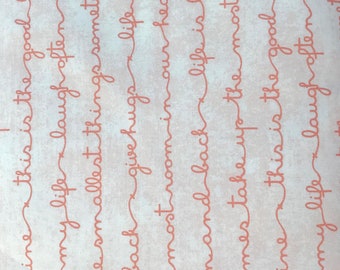 this is the good
my life x laugh often
smallest things somet
back x give hugs x li
most room in our hea
and back x life is
mes take up the mos
this is the good
my life x laugh often